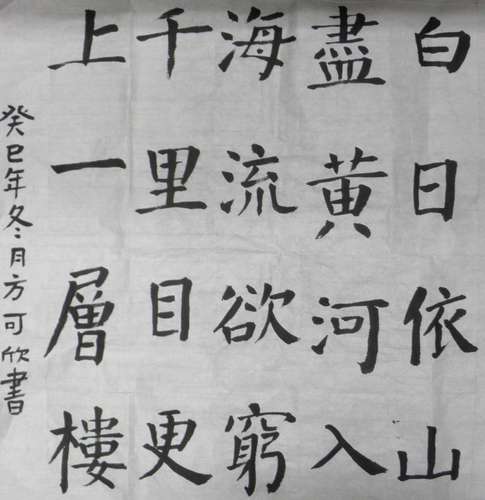 白日依山
盡黃河入
海流欲窮
千里目更
上一層樓
癸巳年冬月方可欣書